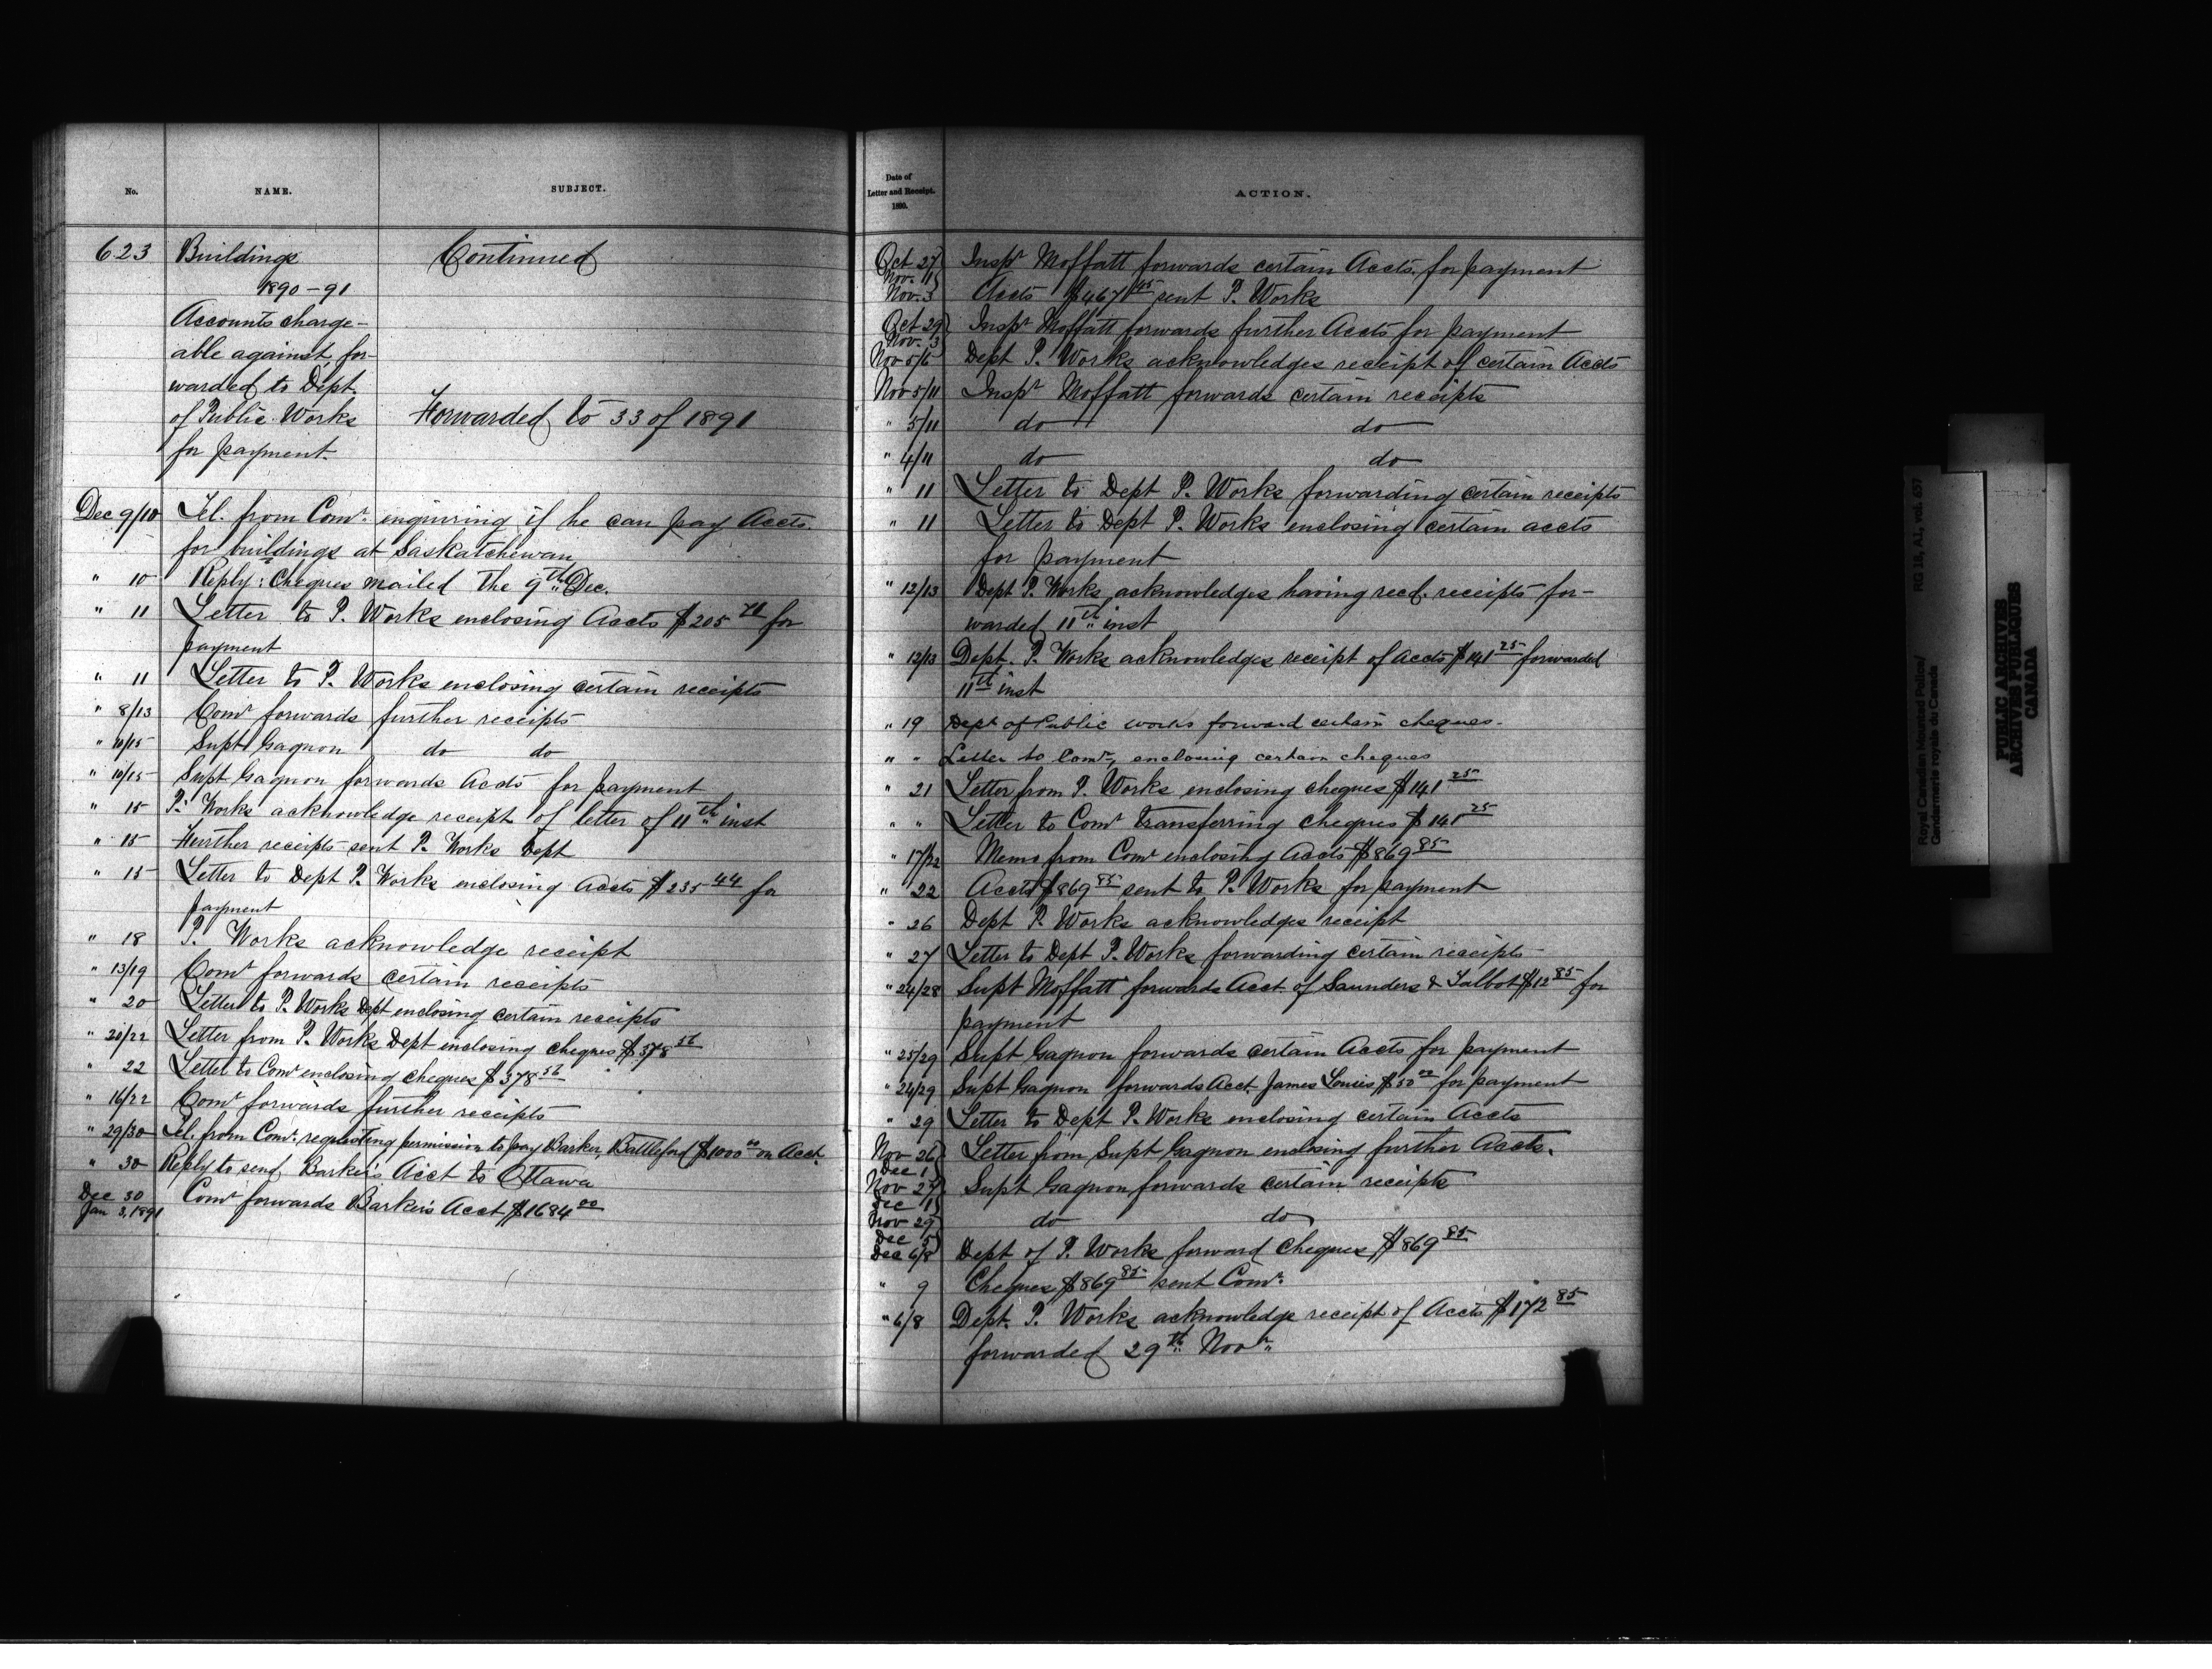 No. NAME. SUBJECT.
623 Buildings Continued
1890-91
Accounts charge-
able against, for-
warded to Dept.
of Public Works Forwarded to 33 of 1891
for payment.
Dec 9/10 Tel. from Comr. enquiring if he can pay Accts.
for buildings at Saskatchewan
" 10 Reply: Cheques mailed the 9th Dec.
" 11 Letter to P. Works enclosing Accts $205 71 for
payment
" 11 Letter to P. Works enclosing certain receipts
" 8/13 Comr forwards further receipts
" 10/15 Supt Gagnon do do
" 10/15 Supt Gagnon forwards Accts for payment
" 15 P. Works acknowledge receipt of letter of 11th inst
" 15 Further receipts sent P. Works Dept
" 15 Letter to Dept P. Works enclosing Accts $235 44 for
payment
" 18 P. Works acknowledge receipt
" 13/19 Comr forwards certain receipts
" 20 Letter to P. Works Dept enclosing certain receipts
" 20/22 Letter from P. Works Dept enclosing cheques $378 56
" 22 Letter to Comr enclosing cheques $378 56
" 16/22 Comr forwards further receipts
" 29/30 Tel. from Comr. requesting permission to pay Barker, Battleford $1000 00 on Acct.
" 30 Reply to send Barker's Acct to Ottawa
Dec 30
Jan 3, 1891 Comr forwards Barker's Acct $1684 00
Date of
Letter and Receipt.
1890.
ACTION.
Oct 27
Nov. 11 Inspr Moffatt forwards certain Accts. for payment
Nov. 3 Accts $467 45 sent P. Works
Oct 29
Nov. 3 Inspr Moffatt forwards further Accts for payment
Nov 5/6 Dept P. Works acknowledges receipt of certain Accts
Nov 5/11 Inspr Moffatt forwards certain receipts
" 5/11 do do
" 4/11 do do
" 11 Letter to Dept P. Works forwarding certain receipts
" 11 Letter to Dept P. Works enclosing certain accts
for payment
" 12/13 Dept P. Works acknowledges having recd. receipts for-
warded 11th inst
" 12/13 Dept. P. Works acknowledges receipt of Accts $141 25 forwarded
11th inst
" 19 Dept of Public works forward certain cheques.
" " Letter to Comr, enclosing certain cheques
" 21 Letter from P. Works enclosing cheques $141 25
" " Letter to Comr transferring cheques $141 25
" 17/22 Memo from Comr enclosing Accts $869 85
" 22 Accts $869 85 sent to P. Works for payment
" 26 Dept P. Works acknowledges receipt
" 27 Letter to Dept P. Works forwarding certain receipts
" 24/28 Supt Moffatt forwards Acct. of Saunders & Talbot $12 85 for
payment
" 25/29 Supt Gagnon forwards certain Accts for payment
" 24/29 Supt Gagnon forwards Acct. James Louis $50 00 for payment
" 29 Letter to Dept P. Works enclosing certain Accts
Nov 26
Dec 1 Letter from Supt Gagnon enclosing further Accts.
Nov 27
Dec 1 Supt Gagnon forwards certain receipts
Nov 29
Dec 5 do do
Dec 6/8 Dept of P. Works forward cheques $869 85
" 9 Cheques $869 85 sent Comr.
" 6/8 Dept. P. Works acknowledge receipt of Accts $172 85
forwarded 29th Novr.
Royal Canadian Mounted Police/
Gendarmerie royale du Canada
RG 18, A1, vol. 637
PUBLIC ARCHIVES
ARCHIVES PUBLIQUES
CANADA